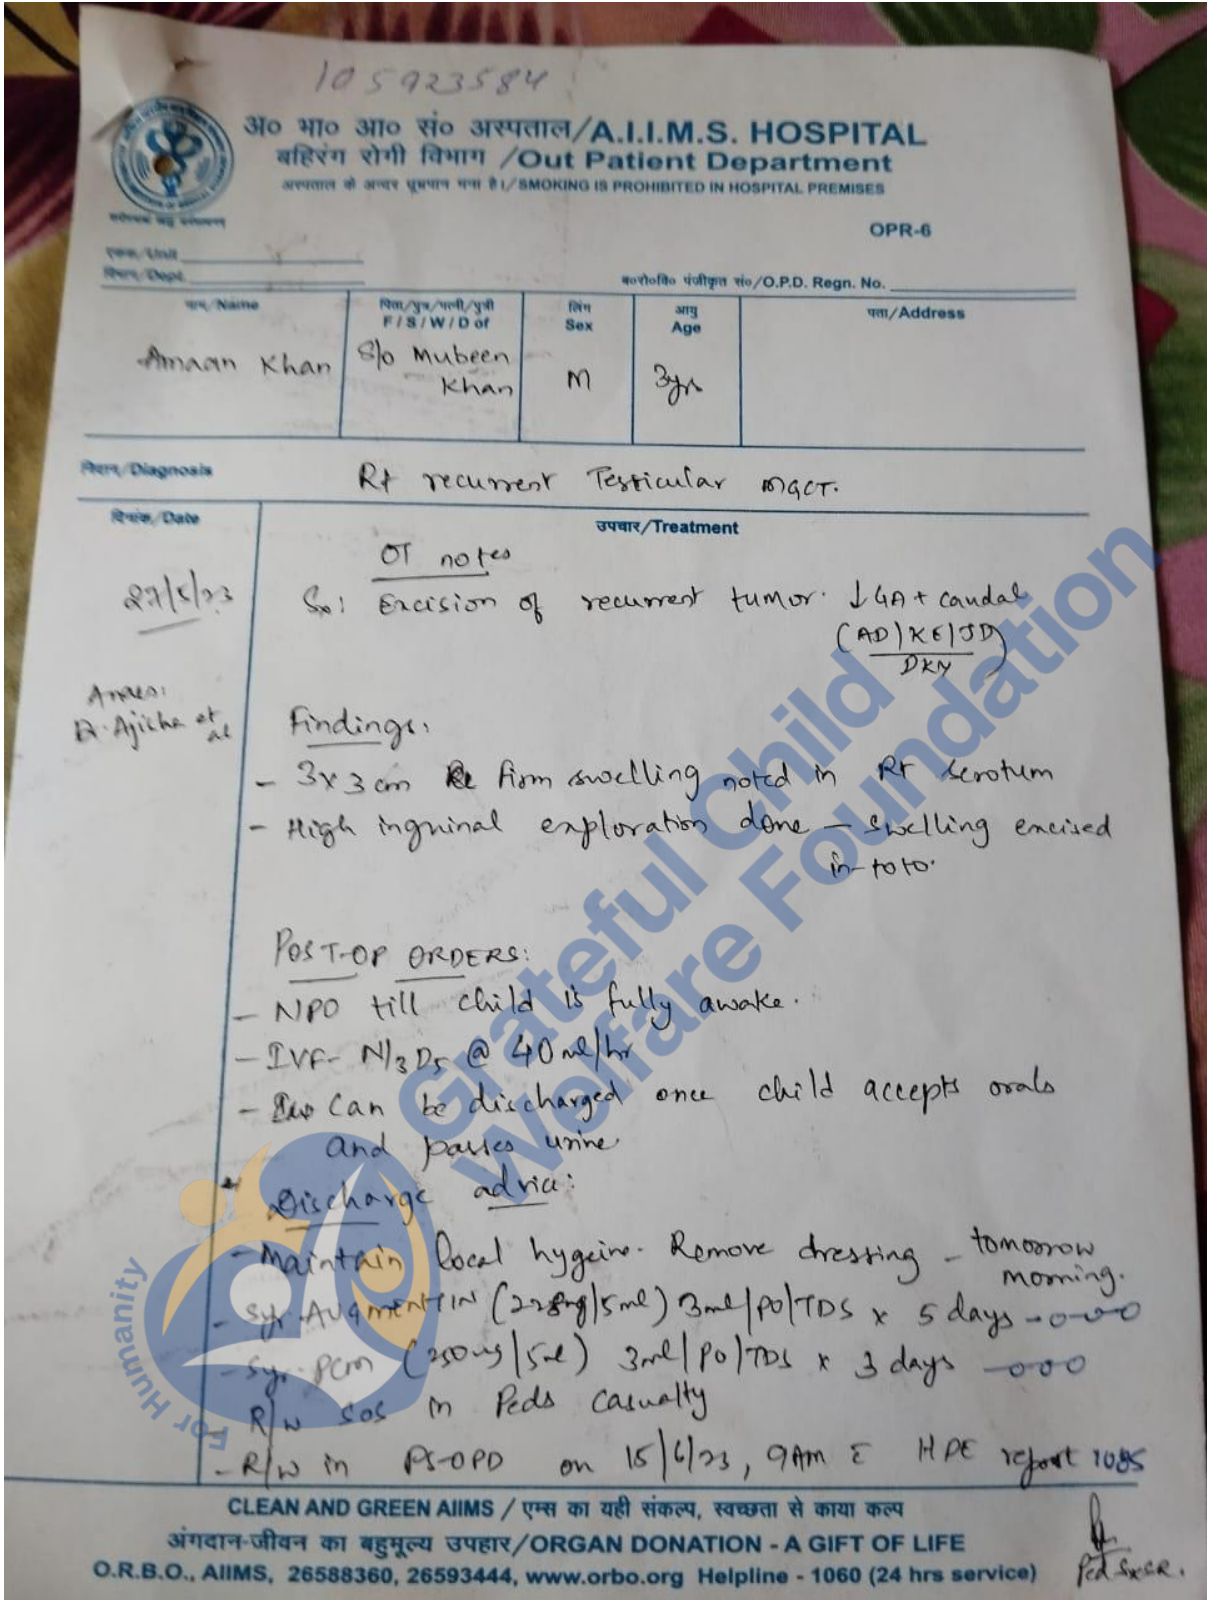 105923584
अ० भा० आ० सं० अस्पताल/A.I.I.M.S. HOSPITAL
बहिरंग रोगी विभाग /Out Patient Department
अस्पताल के अन्दर धूम्रपान मना है।/SMOKING IS PROHIBITED IN HOSPITAL PREMISES
OPR-6
एकक/Unit
विभाग/Dept.
ब०रो०वि० पंजीकृत सं०/O.P.D. Regn. No.
नाम/Name
पिता/पुत्र/पत्नी/पुत्री
F/S/W/D of
लिंग
Sex
आयु
Age
पता/Address
Amaan Khan
S/o Mubeen
Khan
M
3yrs
निदान/Diagnosis
Rt recurrent Testicular MGCT.
दिनांक/Date
उपचार/Treatment
OT notes
27/5/23
Sx: Excision of recurrent tumor. ↓GA + caudal
(AD/KE/JD)
DKY
Anaes:
Dr. Ajisha et
al
Findings:
- 3x3 cm firm swelling noted in Rt scrotum
- High inguinal exploration done - swelling excised
in-toto.
POST-OP ORDERS:
- NPO till child is fully awake.
- IVF- N/3 D5 @ 40 ml/hr
- Can be discharged once child accepts orals
and passes urine
Discharge advice:
- Maintain local hygeine. Remove dressing - tomorrow
morning.
- Syr. AUGMENTIN (228mg/5ml) 3ml/PO/TDS x 5 days -0-0-0
- Syr. PCM (250mg/5ml) 3ml/PO/TDS x 3 days -000
- R/w SOS in Peds casualty
- R/w in PS-OPD on 15/6/23, 9AM c HPE report 1085
Ped Sx SR.
CLEAN AND GREEN AIIMS / एम्स का यही संकल्प, स्वच्छता से काया कल्प
अंगदान-जीवन का बहुमूल्य उपहार/ORGAN DONATION - A GIFT OF LIFE
O.R.B.O., AIIMS, 26588360, 26593444, www.orbo.org Helpline - 1060 (24 hrs service)
Grateful Child
Welfare Foundation
For Humanity